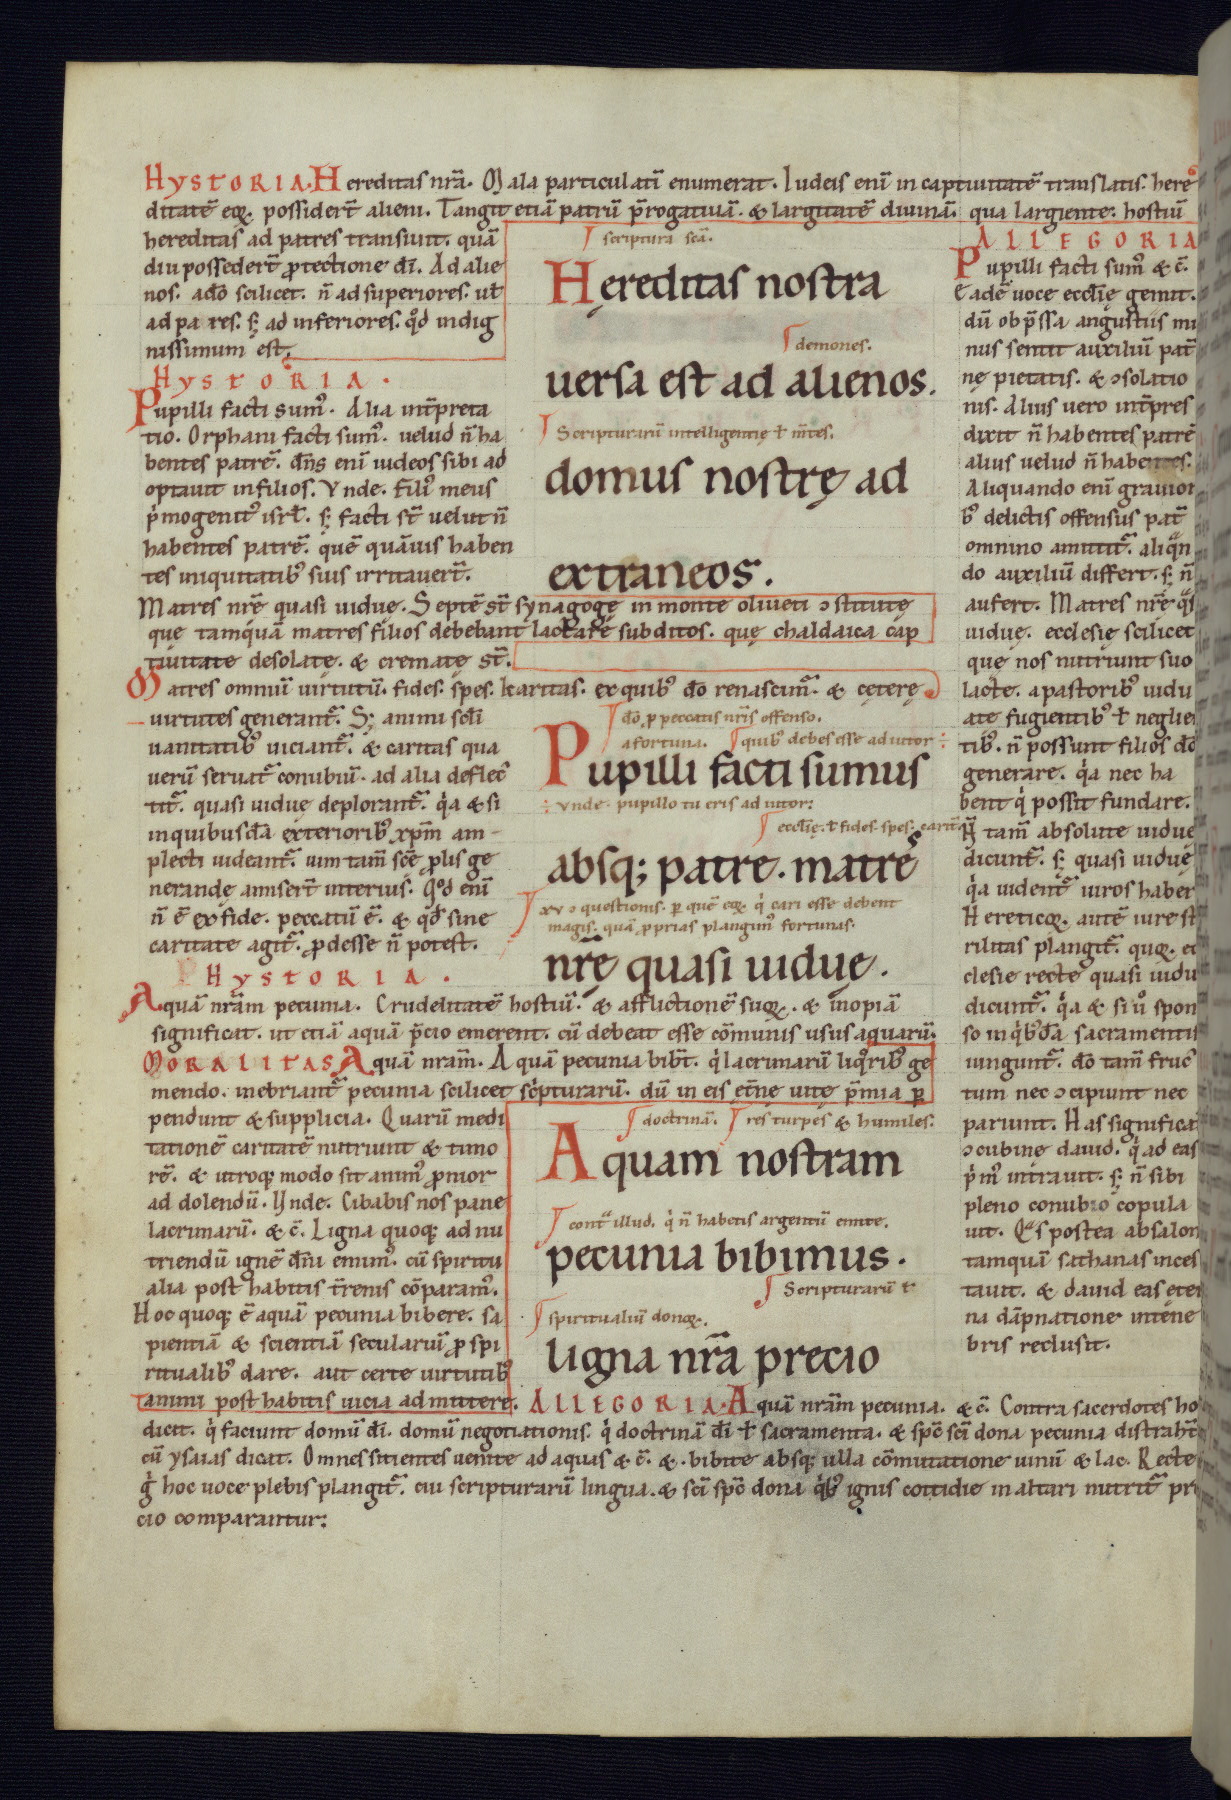 HYSTORIA. Hereditas nr̄a. Mala particulatī enumerat. Iudeis enī in captiuitatē translatis. here
ditatē eoꝝ. possider̄t alieni. Tangit etiā patrū p̄rogatiuā. & largitatē diuinā. qua largiente. hostiū
hereditas ad patres transiuit. quā
diu posseder̄t ꝓtectione dī. Ad alie
nos. ad̄o scilicet. n̄ ad superiores. ut̄
ad patres. sꝫ ad inferiores. qd̄ indig
nissimum est.
HYSTORIA.
Pupilli facti sumꝰ. Alia int̄preta
tio. Orphani facti sumꝰ. uelud n̄ ha
bentes patrē. dn̄s enī iudeos sibi ad
optauit in filios. Vnde. filiꝰ meus
p̄mogenitꝰ isrl̄. sꝫ facti st̄ uelut n̄
habentes patrē. quē quāuis haben
tes iniquitatibꝰ suis irritauer̄t.
Matres nr̄ę quasi uiduę. Septē st̄ synagogę in monte oliueti ɔstitutę
que tamquā matres filios debebant lactare subditos. quę chaldaica cap
tiuitate desolatę. & crematę st̄.
Matres omniū uirtutū. fides. spes. karitas. ex quibꝰ dō renascimᷓ. & cęterę
uirtutes generantᷓ. Sꝫ animi scl̄i
uanitatibꝰ uiciantᷓ. & caritas qua
uerū seruatᷓ conubiū. ad alia deflec
titᷓ. quasi uiduę deplorantᷓ. q̇a & si
in quibusdā exterioribꝰ xp̄m am-
plecti uideantᷓ. uim tam̄ scē ꝓlis ge
nerandę amiser̄t interius. Qd̄ enī
n̄ ē ex fide. peccatū ē. & qd̄ sine
caritate agitᷓ. ꝓdesse n̄ potest.
HYSTORIA.
Aquā nr̄am pecunia. Crudelitatē hostiū. & afflictionē suoꝝ. & inopiā
significat. ut etiā aquā p̄cio emerent. cū debeat esse cōmunis usus aquarū.
MORALITAS Aquā nrām. Aquā pecunia bibit̄. q̇ lacrimarū liq̄ribꝰ ge
mendo. inebriantᷓ pecunia scilicet sc̄pturarū. dū in eis et̄nę uitę p̄mia ꝑ
pendunt & supplicia. Quarū medi
tationē caritatē nutriunt & timo
rē. & utroqꝫ modo sit animꝰ ꝓnior
ad dolendū. Vnde. Cibabis nos pane
lacrimarū. & c̄. Ligna quoqꝫ ad nu
triendū ignē dn̄i emimꝰ. cū spiritu
alia post habitis tr̄enis cōparamꝰ.
Hoc quoqꝫ ē aquā pecunia bibere. sa
pientiā & scientiā secularuī ꝓ spi
ritualibꝰ dare. aut certe uirtutibꝰ
animi post habitis uicia admittere.
scriptura scā.
Hereditas nostra
demones.
uersa est ad alienos.
Scripturarū intelligentię ł m̄tes.
domus nostrę ad
extraneos.
dō ꝓ peccatis nr̄is offenso.
a fortuna. quibꝰ debes esse adiutor
Pupilli facti sumus
Vnde. pupillo tu eris adiutor:
eccl̄ię. ł fides. spes. carit̄
absqꝫ patre. matres
xv ɔquestionis. ꝑ quē eoꝝ q̇ cari esse debent
magis. quā ꝓprias plangimꝰ fortunas.
nr̄ę quasi uiduę.
doctrinā. res turpes & humiles.
Aquam nostram
contᷓ illud. q̇ n̄ habetis argentū emite.
pecunia bibimus.
Scripturarū ł
spiritualiū donoꝝ.
ligna nrᷓa precio
ALLEGORIA
Pupilli facti sumꝰ & c̄.
Eadē uoce eccl̄ię gemit.
dū ob p̄ssa angustiis mi
nus sentit auxiliū pat̄
nę pietatis. & ɔsolatio
nis. Alius uero int̄pres
dixit n̄ habentes patrē
alius uelud n̄ habentes.
Aliquando enī grauior
bꝰ delictis offensus pat̄
omnino amittitᷓ. aliqn̄
do auxiliū differt. sꝫ n̄
aufert. Matres nr̄ę q̄s
uiduę. ecclesię scilicet
que nos nutriunt suo
lacte. a pastoribꝰ uidu
ate fugientibꝰ ł neglien
tibꝰ. n̄ possunt filios dō
generare. q̇a nec ha
bent q̇ possit fundare.
tam̄ absolute uiduę
dicuntᷓ. sꝫ quasi uiduę
q̇a uidentᷓ uiros haber
Hereticoꝝ autē iure st
rilitas plangitᷓ. quoꝝ ec
clesie recte quasi uidu
dicuntᷓ. q̇a & si ů spon
so in q̇bꝰdā sacramentis
iunguntᷓ. dō tam̄ fruc
tum nec ɔcipiunt nec
pariunt. Has significa
ɔcubine dauid. q̇ ad eas
p̄mꝰ intrauit. sꝫ n̄ sibi
pleno conubio copula
uit. Qᵃs postea absalon
tamquā sathanas inces
tauit. & dauid eas eter
na dāpnatione intene
bris reclusit.
ALLEGORIA. Aquā nrām pecunia. & c̄. Contra sacerdotes ho
dicit. q̇ faciunt domū dī. domū negotiationis. q̇ doctrinā dī ł sacramenta. & spc̄ scī dona pecunia distrahūt
cū ysaias dicat. Omnes sitientes uenite ad aquas & c̄. &. bibite absqꝫ ulla cōmutatione uinū & lac. Recte
g̊ hoc uoce plebis plangitᷓ. cui scripturarū lingua. & scī spc̄ dona q̇bꝰ ignis cottidie in altari nutritᷓ pre
cio comparantur: